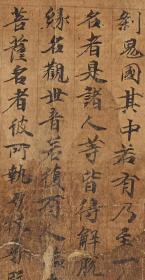 刹鬼國其中若有乃至一
名者是諸人等皆得解脫
緣名觀世音若復有人臨
菩薩名者彼所執刀杖尋